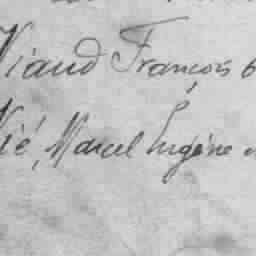 Viaud François 6
Vié, Marcel Eugène